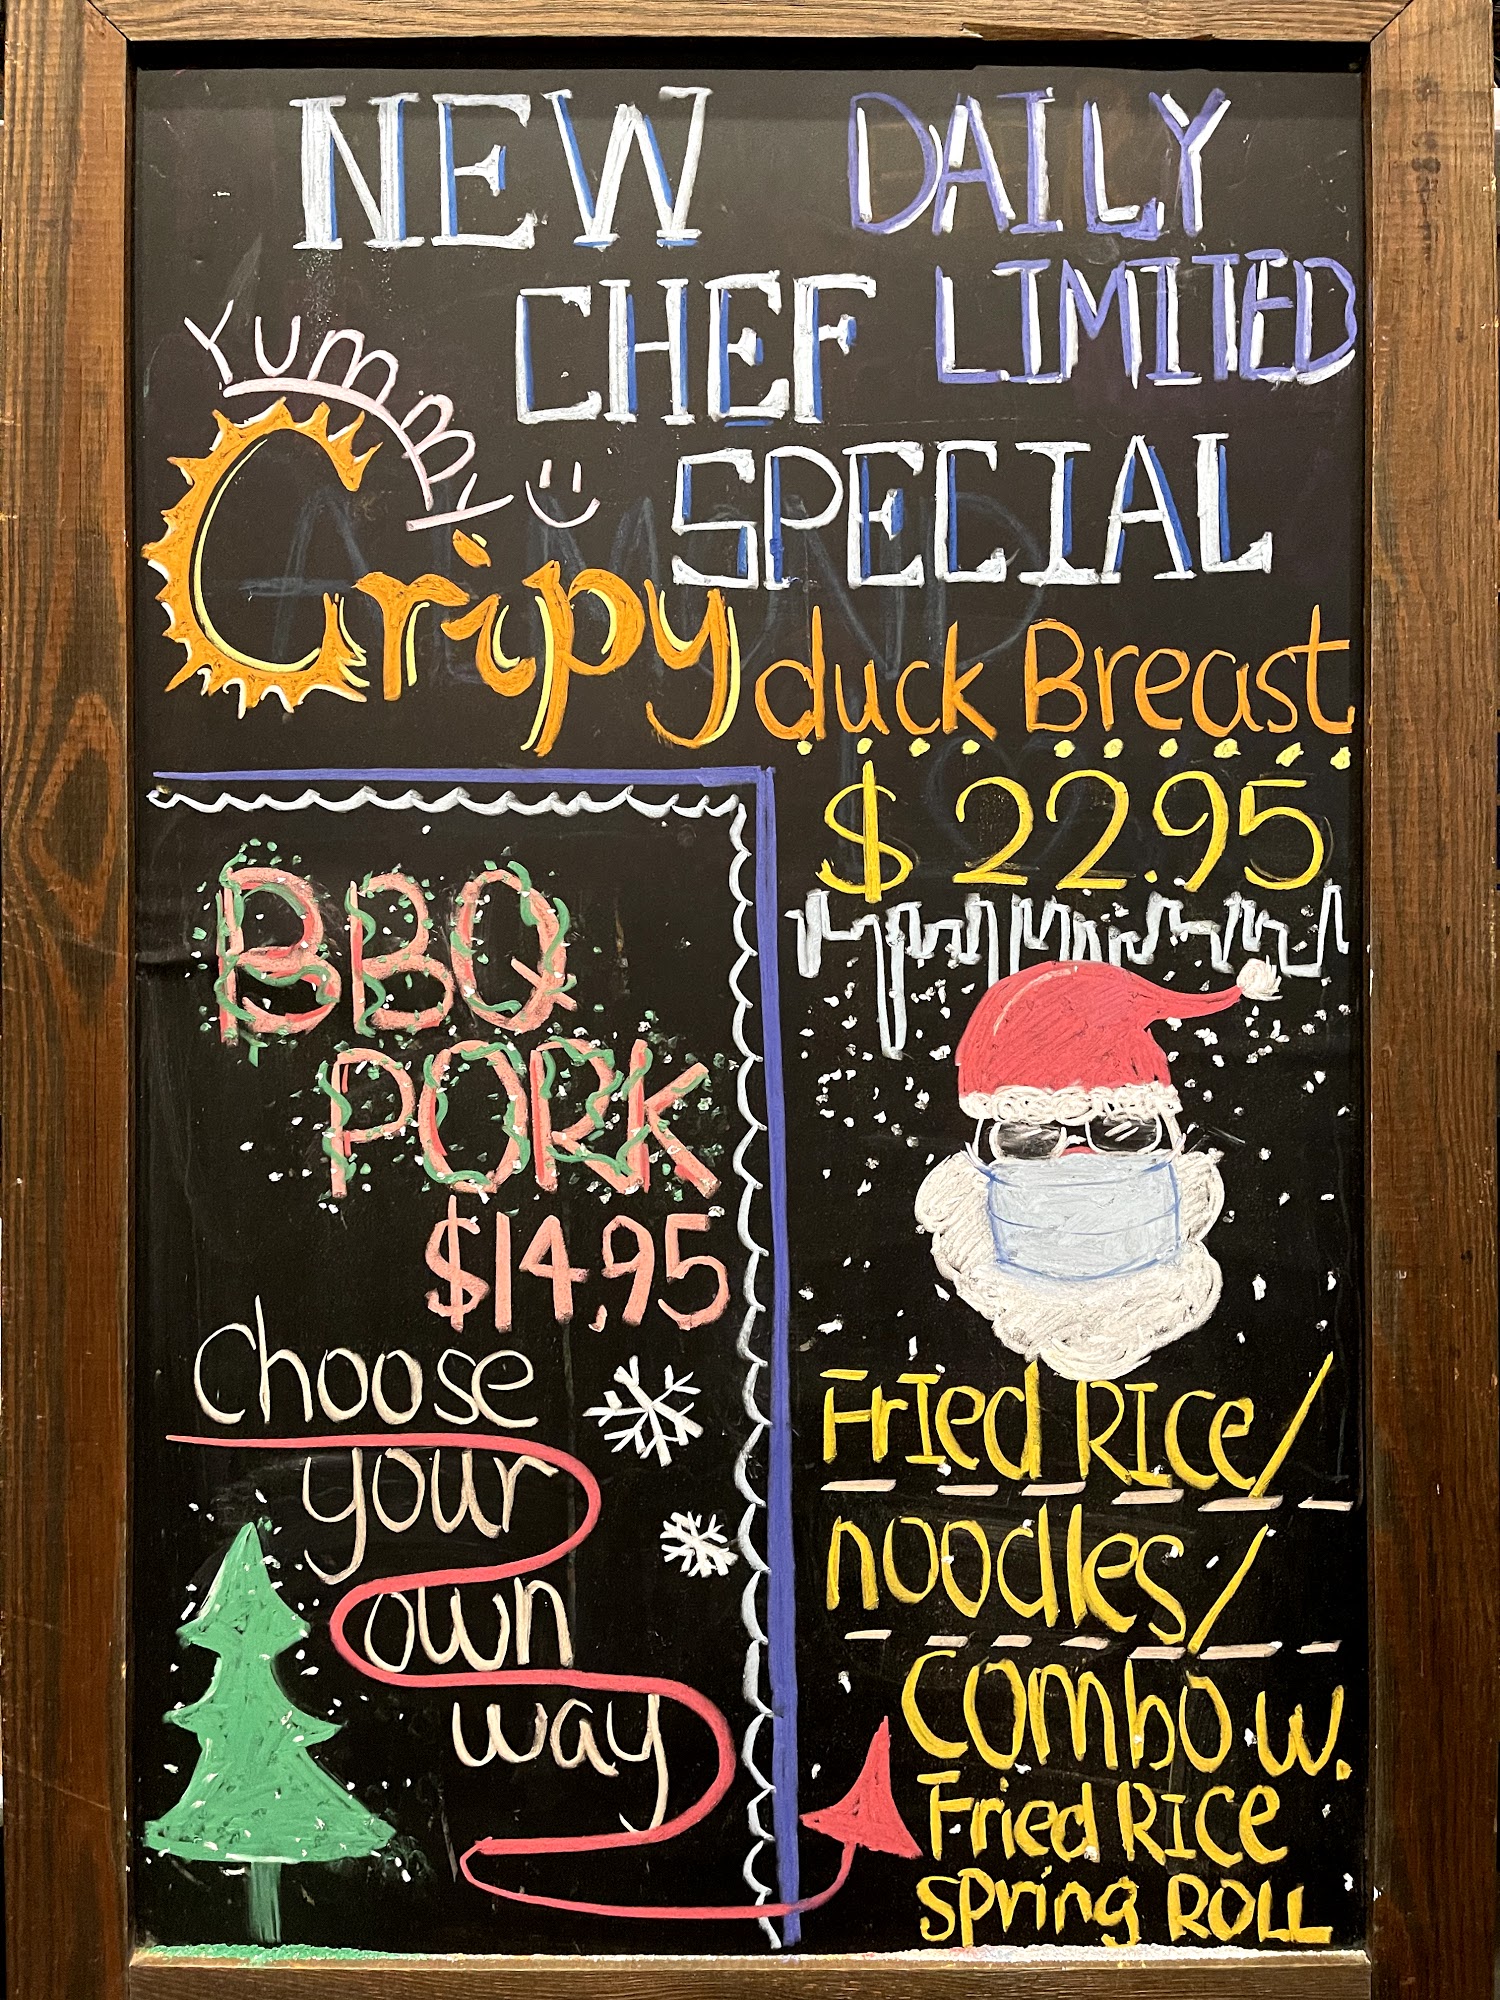 NEW
CHEF
SPECIAL
DAILY
LIMITED
Yummmy
Cripy duck Breast
$22.95
BBQ
PORK
$14,95
Choose
your
own
way
Fried RIce/
noodles/
combo w.
Fried RIce
spring ROLL